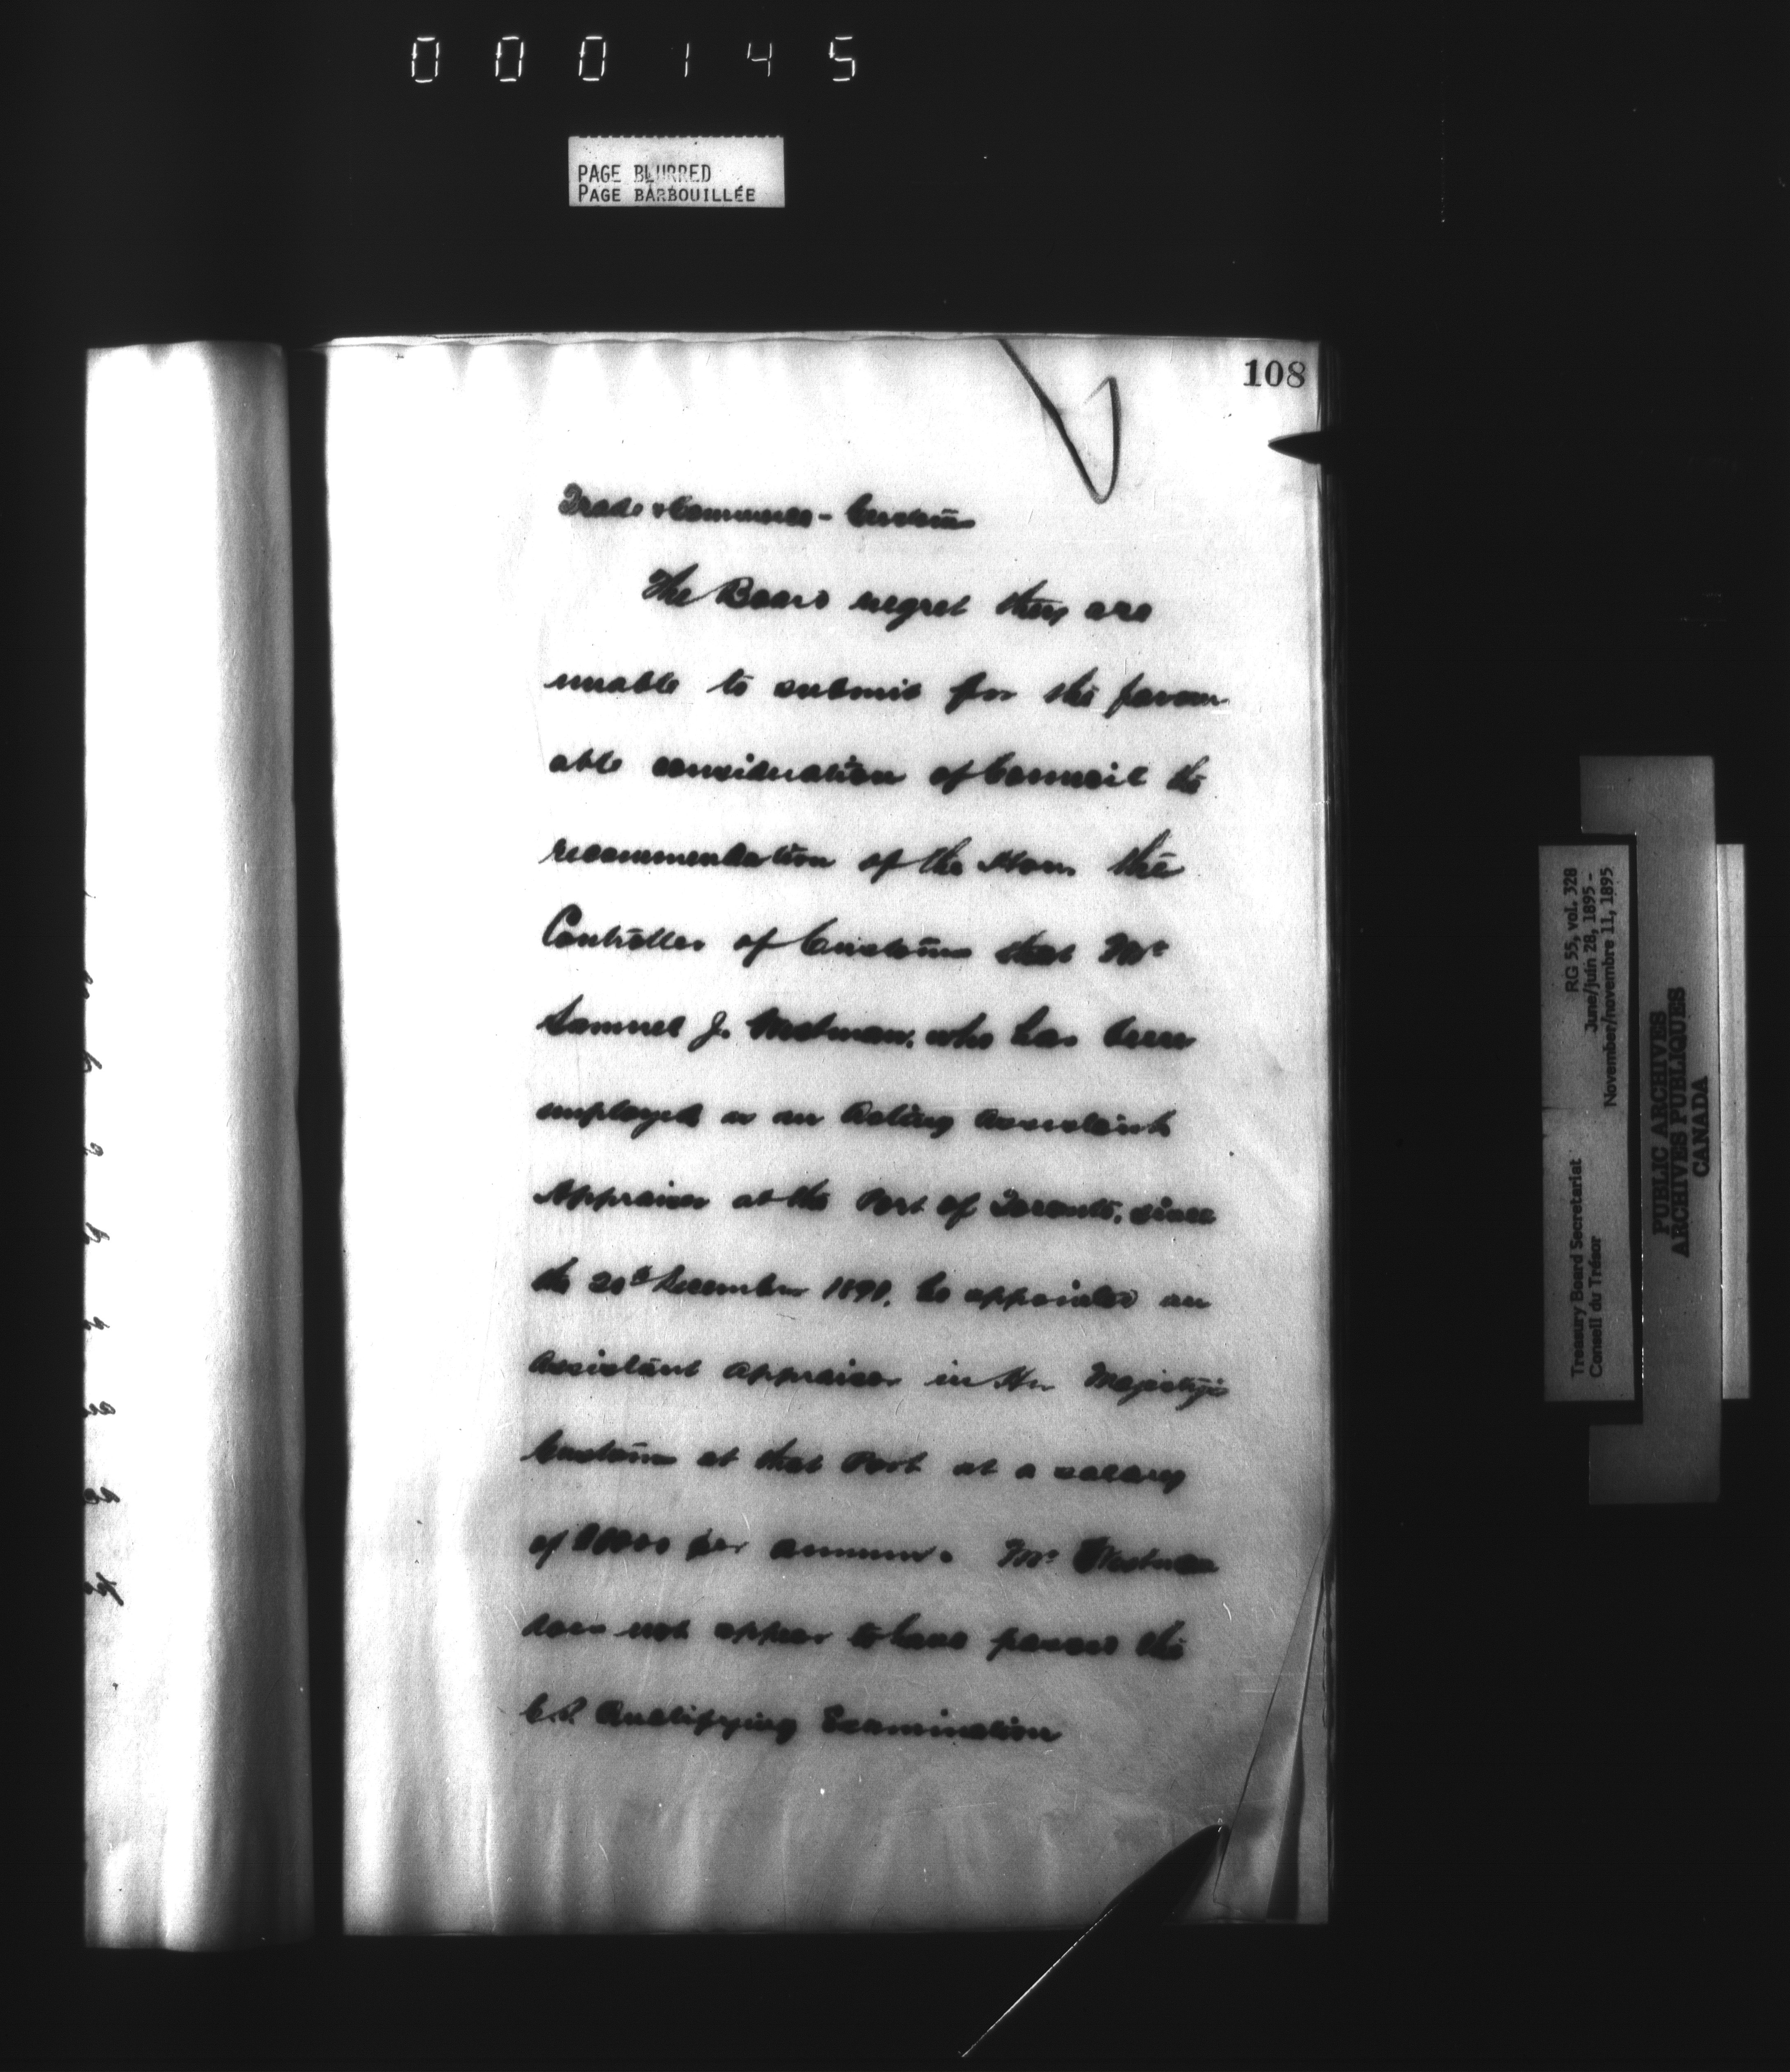 000145
PAGE BLURRED
PAGE BARBOUILLÉE
108
Trade & Commerce - Customs
The Board regret they are
unable to submit for the favour
able consideration of Council the
recommendation of the Hon. the
Controller of Customs that Mr
Samuel J. Westman, who has been
employed as an Acting Assistant
Appraiser at the Port of Toronto, since
the 20th December 1890, be appointed an
Assistant Appraiser in Her Majesty's
Customs at that Port at a salary
of per annum. Mr Westman
does not appear to have passed the
C.S. Qualifying Examination
Treasury Board Secretariat
Conseil du Trésor
RG 55, vol. 328
June/juin 28, 1895 -
November/novembre 11, 1895
PUBLIC ARCHIVES
ARCHIVES PUBLIQUES
CANADA